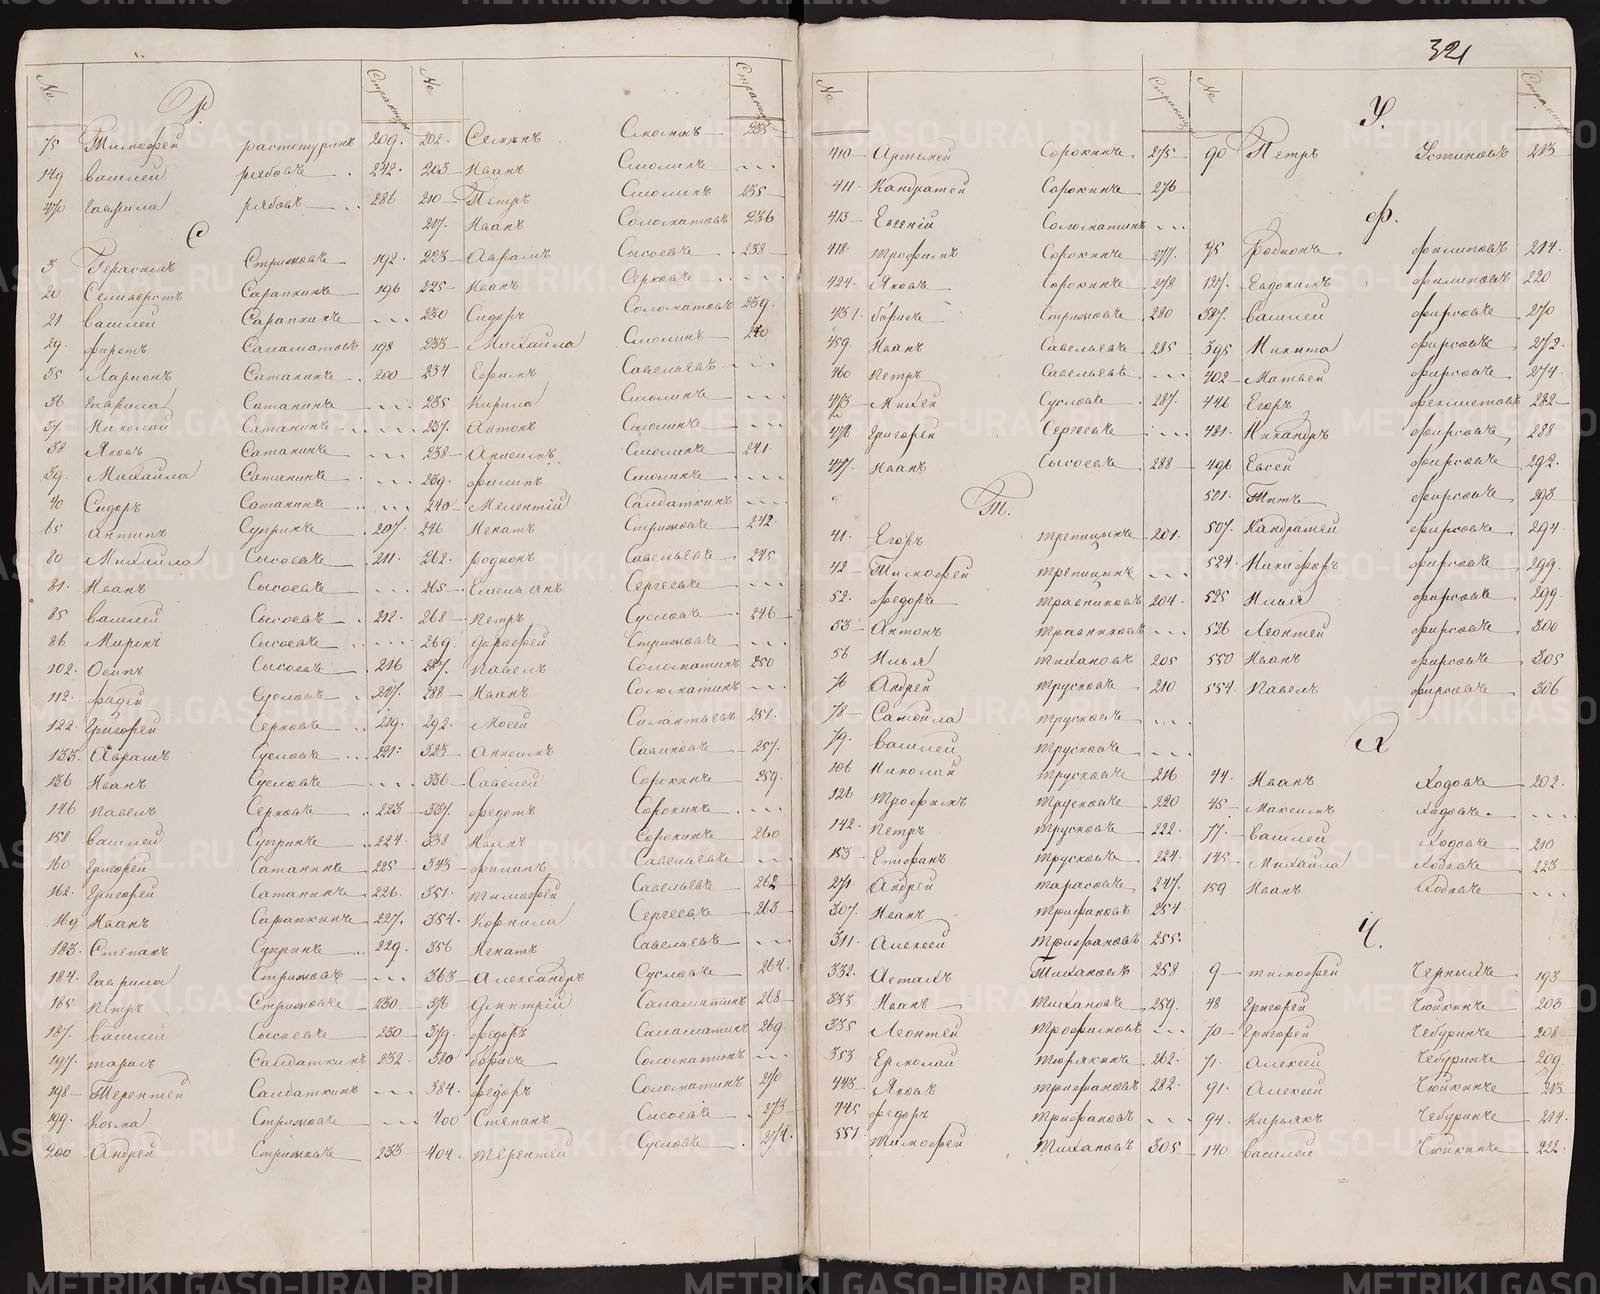 321
№ Страницы
Р.
75 Тимофей растотурпнъ 209.
149 василей рябовъ 242.
470 гаврила рябовъ 286
С
3 Герасимъ Стрижовъ 192.
20 Селиверстъ Сарапкинъ 196
21 василей Сарапкинъ
29. фирстъ Саламатовъ 198
35 Ларионъ Сатанинъ 200
36 гаврила Сатанинъ
37. Николай Сатанинъ
38 Яковъ Сатанинъ
39. Михайла Сатанинъ
40 Сидоръ Сатанинъ
65 антипъ Супринъ 207.
80 Михайла Сысоевъ 211.
81. Иванъ Сысоевъ
85 василей Сысоевъ 212.
86 Миронъ Сысоевъ
102. Осипъ Сысоевъ 216
112. фадей Сусловъ 217.
122. Григорей Серковъ 219.
133. Аврамъ Сусловъ 221.
136 Иванъ Сусловъ
146 павелъ Серковъ 223
158 василей Супринъ 224.
160 Григорей Сатанинъ 225
162. Григорей Сатанинъ 226.
169 Иванъ Сарапкинъ 227.
183. Степанъ Супринъ 229.
184. гаврила Стрижовъ
185 петръ Стрижовъ 230
187. василей Сысоевъ 230
197. тарасъ Салдаткинъ 232.
198 Терентей Салдаткинъ
199. Козма Стрижовъ
200 Андрей Стрижовъ 233
№ Страницы
202. Семенъ Смолинъ 235
203 Иванъ Смолинъ
210 Петръ Смолинъ 235
217. Иванъ Соломатовъ 236
223 Аврамъ Сысоевъ 238
225 Иванъ Серковъ
230 Сидоръ Соломатовъ 239.
233 Михайла Смолинъ 240
234 Ефимъ Савельевъ
235 Кирила Смолинъ
237. Антонъ Смолинъ
238 Анисимъ Смолинъ 241
239. филипъ Смолинъ
240 Мелентій Салдаткинъ
246 Игнатъ Стрижовъ 242.
262. родионъ Савельевъ 245
265 Емельянъ Сергеевъ
268 Петръ Сусловъ 246
269. дорофей Стрижовъ
287. павелъ Соломатинъ 250
288 Иванъ Соломатинъ
292. Мосей Силантьевъ 251.
323 Анисимъ Савиновъ 257.
336 Савелей Сорокинъ 259.
337. федотъ Сорокинъ
338 Иванъ Сорокинъ 260
343 филипъ Савельевъ
351. тимофей Савельевъ 262
354. Корнила Сергеевъ 263
356 Игнатъ Савельевъ
363 Александръ Сусловъ 264.
376 Дмитрій Саламатинъ 268
379. федоръ Саламатинъ 269.
380 борисъ Соломатинъ
384. федоръ Соломатинъ 270
400 Степанъ Сысоевъ 273
404. терентей Сусловъ 274.
№ Страницы
410 Артемей Сорокинъ 275
411. Кандратей Сорокинъ 276
413 Евгеній Соломатинъ
418 трофимъ Сорокинъ 277.
424. Яковъ Сорокинъ 278
431. борисъ Стрижовъ 280
459. Иванъ Савельевъ 285
460 петръ Савельевъ
473 Михей Сусловъ 287.
476 Григорей Сергеевъ
477. Иванъ Сысоевъ 288
Т.
41. Егоръ трепицынъ 201.
42 Тимофей трепицынъ
52. федоръ травниковъ 204.
53 Антонъ травниковъ
56 Илья тихановъ 205
76 Андрей трусковъ 210
78 Самойла трусковъ
79. василей трусковъ
106 Николай трусковъ 216
126 трофимъ трусковъ 220
142. петръ трусковъ 222.
153 Епифанъ трусковъ 224.
271. Андрей тарасовъ 247.
307. Иванъ трифановъ 254
311. Алексей трифановъ 255.
332. Астахъ Тихановъ 258
333 Иванъ тихановъ 259.
335 Леонтей трофимовъ
353 Ермолай тюрякинъ 262.
443. Яковъ трифановъ 282.
445 федоръ трифановъ
551. тимофей тихановъ 305
№ Страницы
У.
90 Петръ Устиновъ 213
Ф.
95 родионъ филиповъ 214.
127. Евдокимъ филиповъ 220
387. василей фирсовъ 270
395 Никита фирсовъ 272.
402 Матвей фирсовъ 274.
446 Егоръ феклистовъ 282
481. Никандръ фирсовъ 288
496 Евсей фирсовъ 292.
501. Титъ фирсовъ 293
507. Кандратей фирсовъ 294.
524. Никифоръ фирсовъ 299.
525 Илья фирсовъ 299.
526 Леонтей фирсовъ 300
550 Иванъ фирсовъ 305
554. павелъ фирсовъ 306
Х
44. Иванъ Ходовъ 202.
45 Максимъ Ходовъ
77. василей Ходовъ 210
145 Михайла Ходовъ 223
159 Иванъ Ходовъ
Ч.
9 тимофей Черныхъ 193
48 Григорей Чюйкинъ 203
70 Григорей Чебуринъ 208
71. Алексей Чебуринъ 209.
91. Алексей Чюйкинъ 213
94. Кирьякъ Чебуринъ 214.
140 василей Чюйкинъ 222.
METRIKI.GASO-URAL.RU